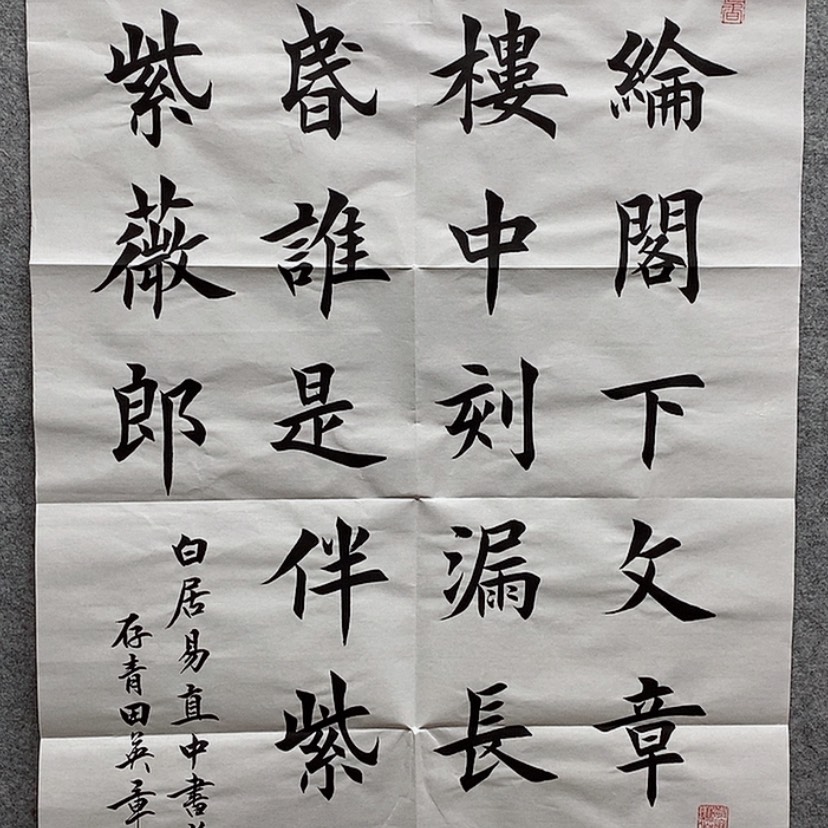 綸閣下文章
樓中刻漏長
昏誰是伴紫
紫薇郎
白居易直中書
存青田英章